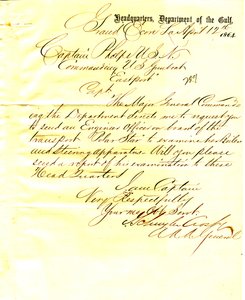 Headquarters, Department of the Gulf,
Grand Ecore La April 12th 1864
Captain Phelps U.S.N.
Commanding U.S. Gunboat
Eastport
Capt
The Major General Command
ing the Department directs me to request you
to send an Engineer Officer on board of the
transport Polar Star to examine her Boilers
and Steering Apparatus. Will you please
send a report of his examination to these
Head Quarters
I am Captain
Very Respectfully
Your Obt Servt
General